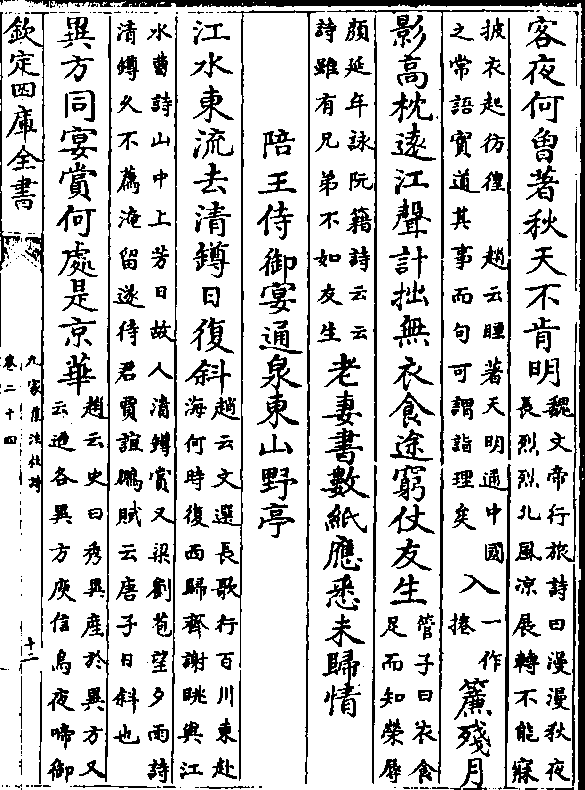 客夜何曾著秋天不肯明
魏文帝行旅詩曰漫漫秋夜
長烈烈北風凉展轉不能寐
披衣起彷徨　趙云睡著天明通中國
之常語實道其事而句可謂詣理矣
入
一作
捲
簾殘月
影高枕遠江聲計拙無衣食途窮仗友生
管子曰衣食
足而知榮辱
顔延年詠阮籍詩云云
詩雖有兄弟不如友生
老妻書數紙應悉未歸情
陪王侍御宴通泉東山野亭
江水東流去清鐏日復斜
趙云文選長歌行百川東赴
海何時復西歸齊謝眺與江
水曹詩山中上芳日故人清鐏賞又梁劉苞望夕雨詩
清鐏久不薦淹留遂待君賈誼鵩賦云唐子日斜也
異方同宴賞何處是京華
趙云史曰秀異産於異方又
云遁各異方庾信烏夜啼御
欽定四庫全書
九家集注杜詩
卷二十四
十二